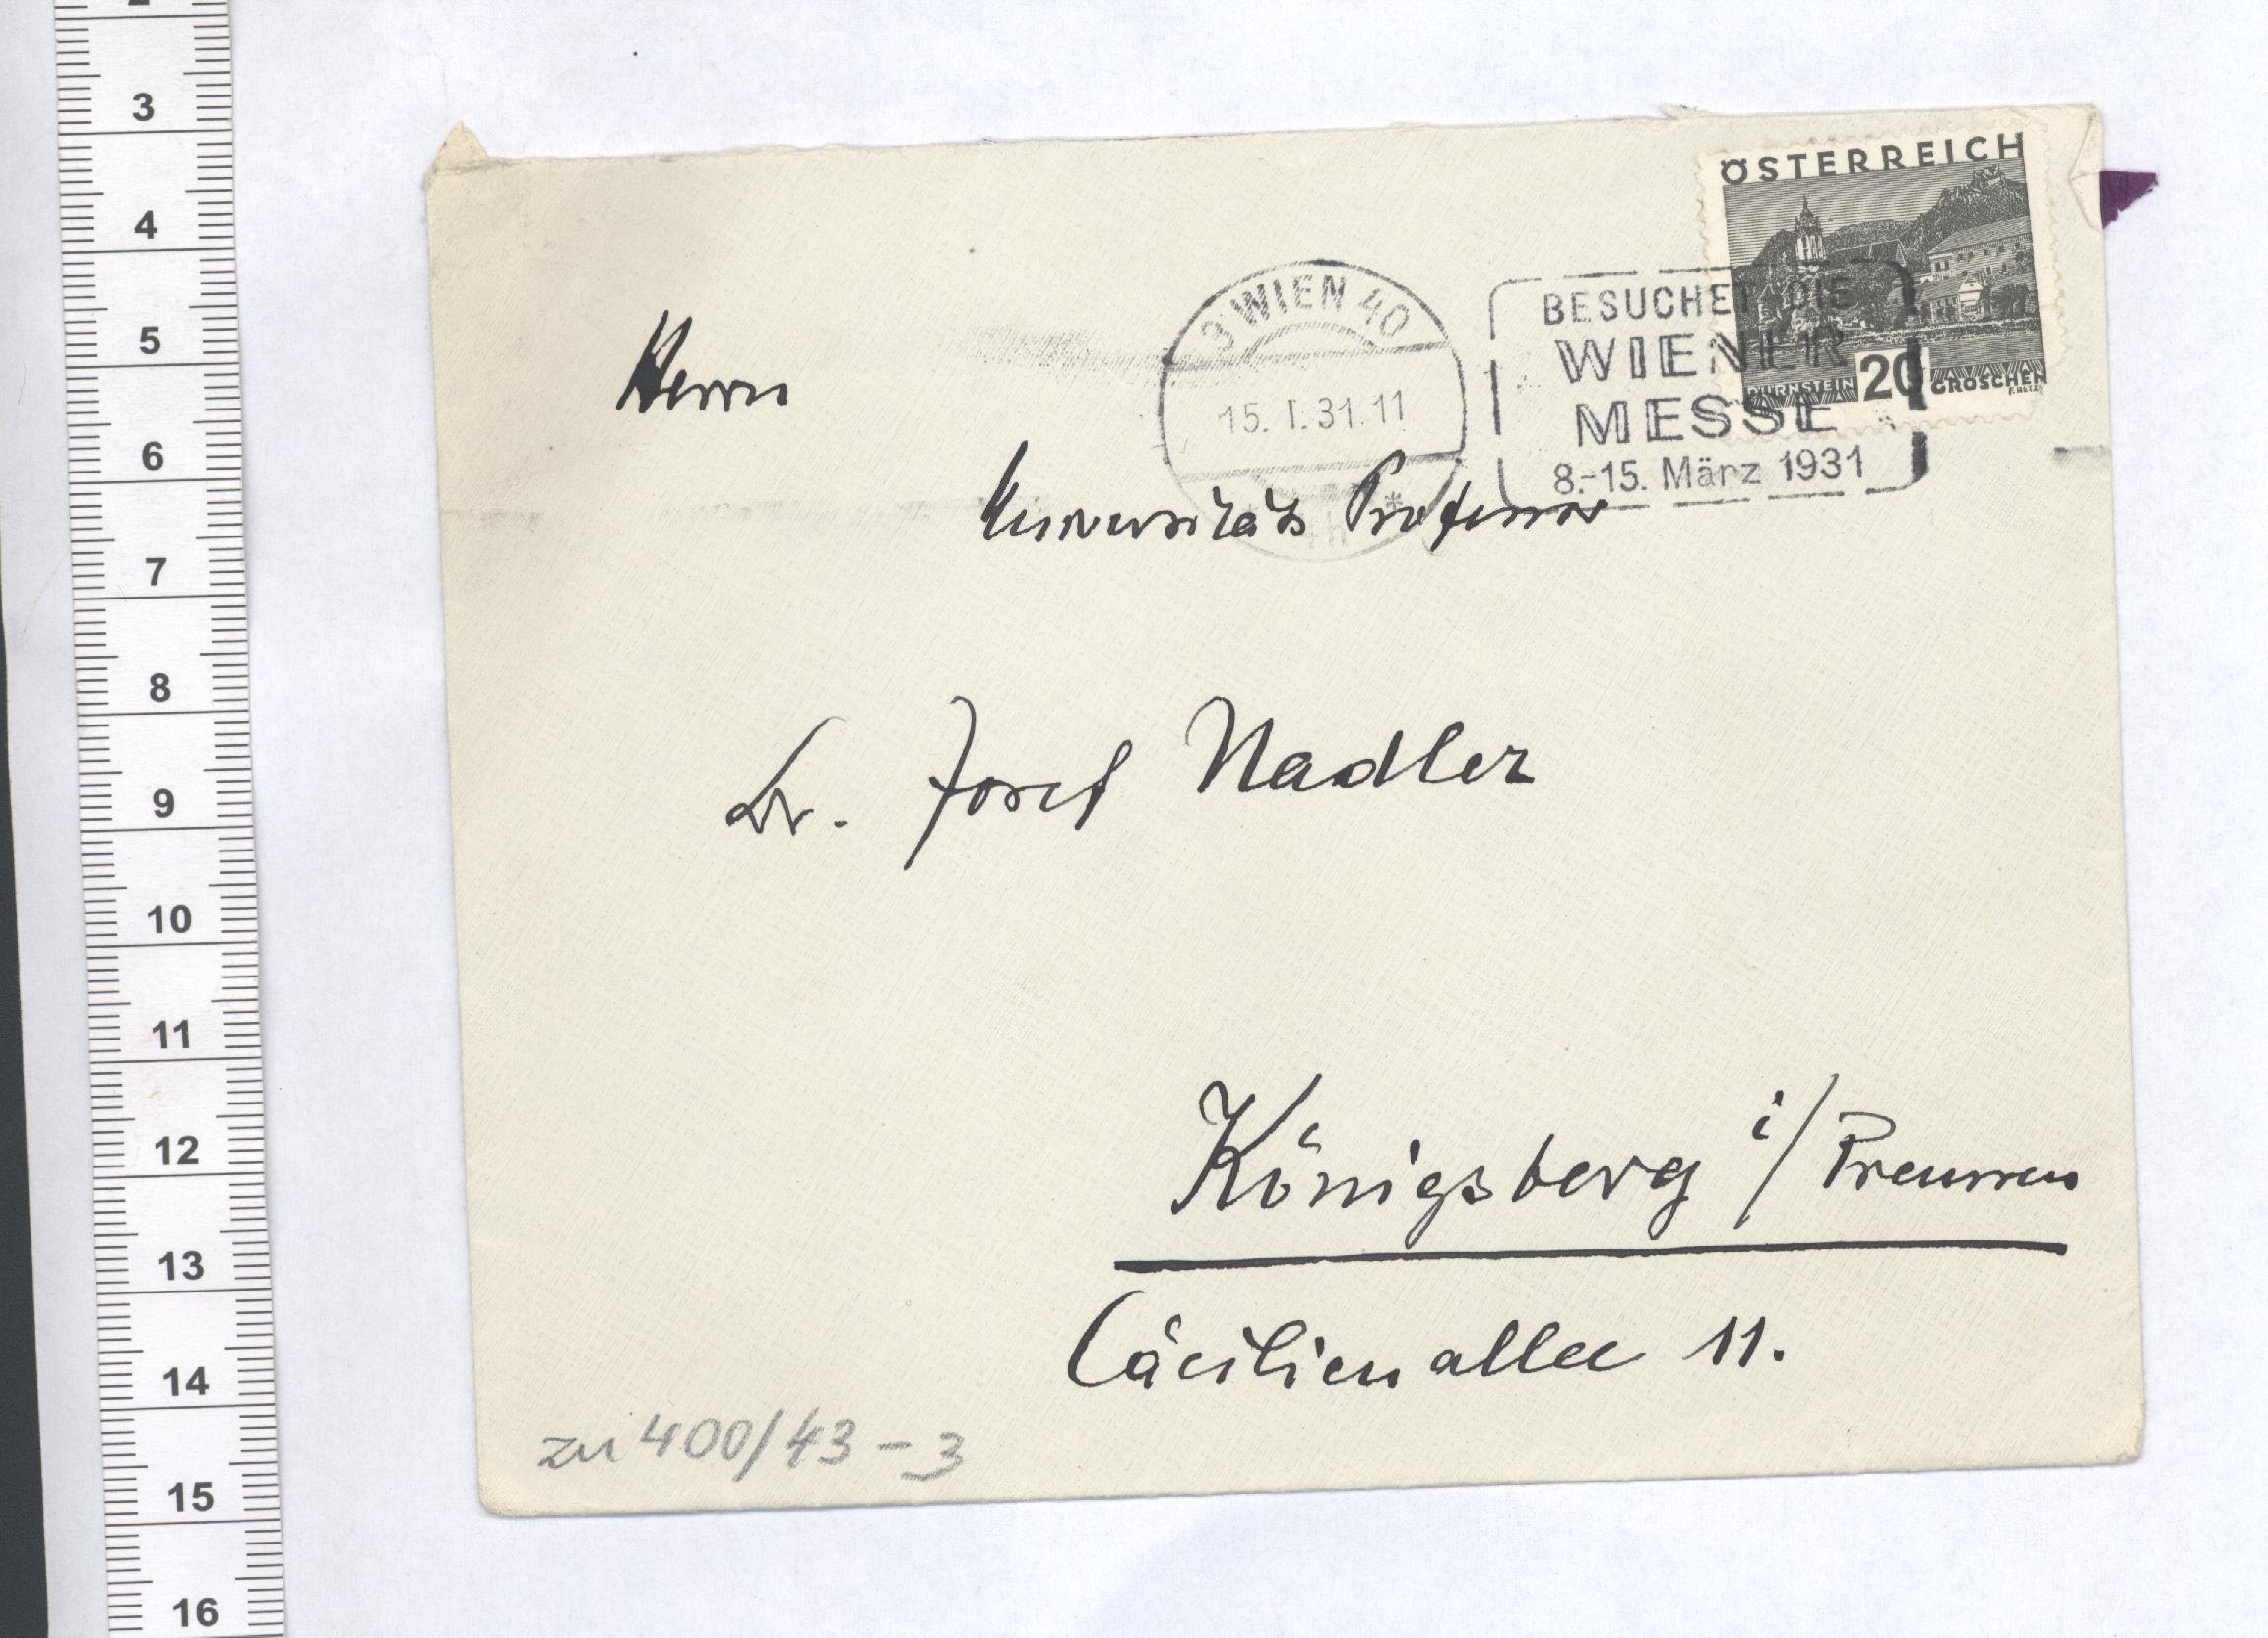 3
4
5
6
7
8
9
10
11
12
13
14
15
16
ÖSTERREICH
DÜRNSTEIN 20 GROSCHEN
WIEN 40
15. I. 31. 11
*
BESUCHET DIE
WIENER
MESSE
8.-15. März 1931
Herrn
Universitäts Professor
Dr. Josef Nadler
Königsberg i/Preussen
Cäcilienallee 11.
zu 400/43-3